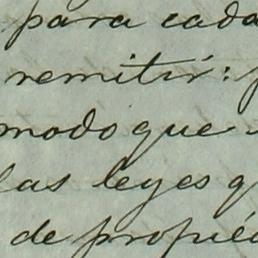 para cada
remitir:
modo que
las leyes q
de propié